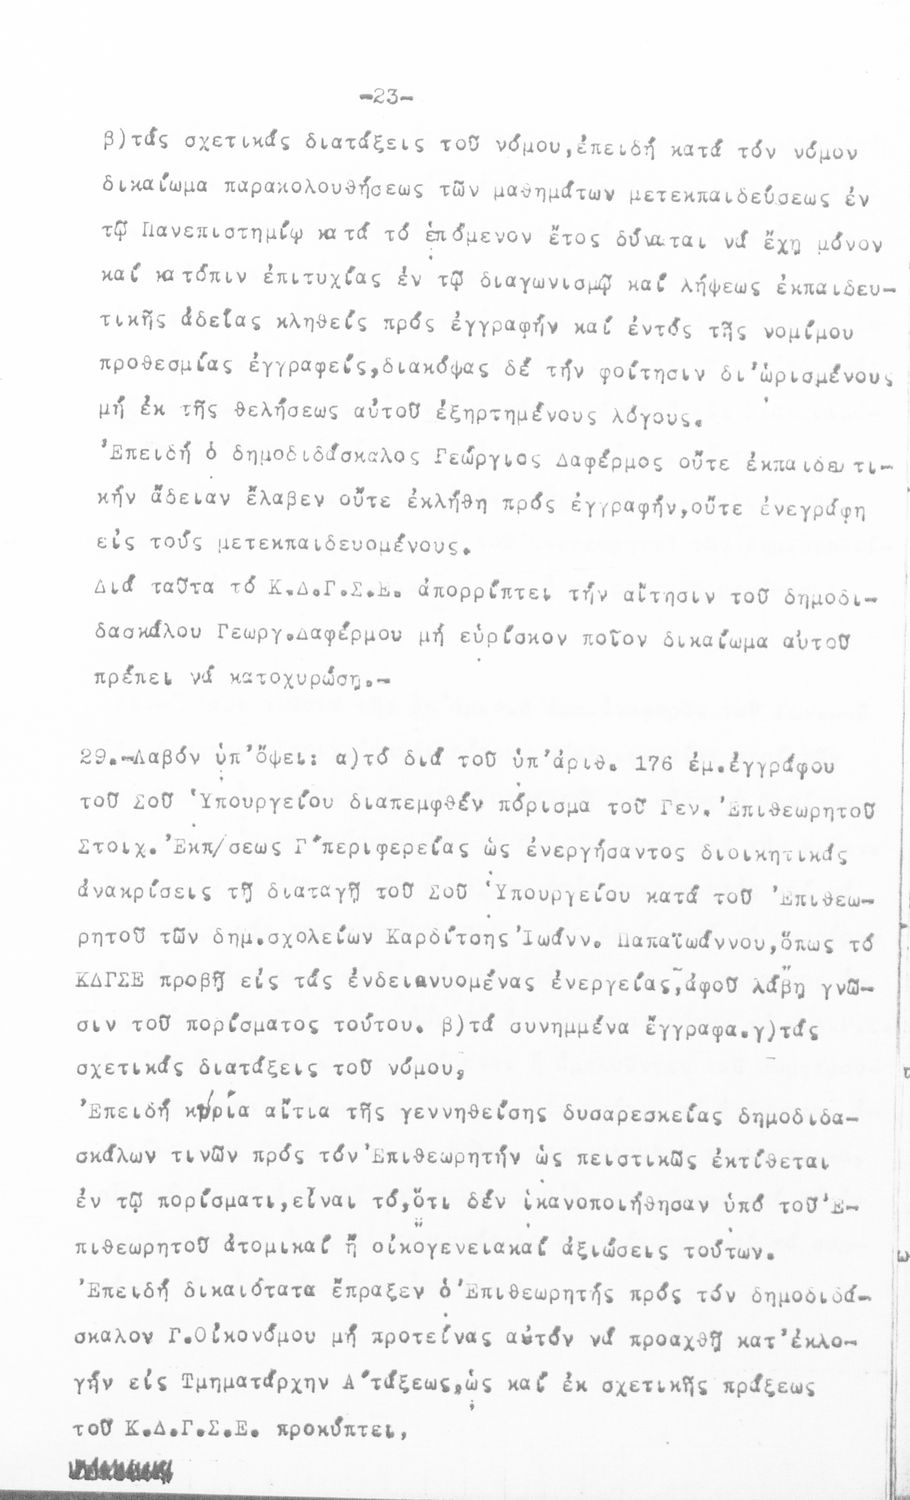 -23-
β)τάς σχετικάς διατάξεις τοῦ νόμου,ἐπειδή κατά τόν νόμον
δικαίωμα παρακολουθήσεως τῶν μαθημάτων μετεκπαιδεύσεως ἐν
τῷ Πανεπιστημίῳ κατά τό ἑπόμενον ἔτος δύναται νά ἔχῃ μόνον
καί κατόπιν ἐπιτυχίας ἐν τῷ διαγωνισμῷ καί λήψεως ἐκπαιδευ-
τικῆς ἀδείας κληθείς πρός ἐγγραφήν καί ἐντός τῆς νομίμου
προθεσμίας ἐγγραφείς,διακόψας δέ τήν φοίτησιν δι'ὡρισμένους
μή ἐκ τῆς θελήσεως αὐτοῦ ἐξηρτημένους λόγους.
Ἐπειδή ὁ δημοδιδάσκαλος Γεώργιος Δαφέρμος οὔτε ἐκπαιδευτι-
κήν ἄδειαν ἔλαβεν οὔτε ἐκλήθη πρός ἐγγραφήν,οὔτε ἐνεγράφη
εἰς τούς μετεκπαιδευομένους.
Διά ταῦτα τό Κ.Δ.Γ.Σ.Ε. ἀπορρίπτει τήν αἴτησιν τοῦ δημοδι-
δασκάλου Γεωργ.Δαφέρμου μή εὑρίσκον ποῖον δικαίωμα αὐτοῦ
πρέπει νά κατοχυρώσῃ.-
29.-Λαβόν ὑπ'ὄψει: α)τό διά τοῦ ὑπ'ἀριθ. 176 ἐμ.ἐγγράφου
τοῦ Σοῦ Ὑπουργείου διαπεμφθέν πόρισμα τοῦ Γεν. Ἐπιθεωρητοῦ
Στοιχ. Ἐκπ/σεως Γ'περιφερείας ὡς ἐνεργήσαντος διοικητικάς
ἀνακρίσεις τῇ διαταγῇ τοῦ Σοῦ Ὑπουργείου κατά τοῦ Ἐπιθεω-
ρητοῦ τῶν δημ.σχολείων Καρδίτσης Ἰωάνν. Παπαϊωάννου,ὅπως τό
ΚΔΓΣΕ προβῇ εἰς τάς ἐνδεικνυομένας ἐνεργείας,ἀφοῦ λάβῃ γνῶ-
σιν τοῦ πορίσματος τούτου. β)τά συνημμένα ἔγγραφα.γ)τάς
σχετικάς διατάξεις τοῦ νόμου,
Ἐπειδή κυρία αἴτια τῆς γεννηθείσης δυσαρεσκείας δημοδιδα-
σκάλων τινῶν πρός τόν Ἐπιθεωρητήν ὡς πειστικῶς ἐκτίθεται
ἐν τῷ πορίσματι,εἶναι τό,ὅτι δέν ἱκανοποιήθησαν ὑπό τοῦ Ἐ-
πιθεωρητοῦ ἀτομικαί ἤ οἰκογενειακαί ἀξιώσεις τούτων.
Ἐπειδή δικαιότατα ἔπραξεν ὁ Ἐπιθεωρητής πρός τόν δημοδιδά-
σκαλον Γ.Οἰκονόμου μή προτείνας αὐτόν νά προαχθῇ κατ'ἐκλο-
γήν εἰς Τμηματάρχην Α'τάξεως,ὡς καί ἐκ σχετικῆς πράξεως
τοῦ Κ.Δ.Γ.Σ.Ε. προκύπτει,